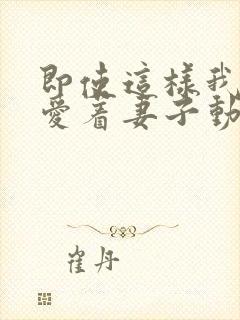 即使這樣我
愛着妻子動
崔丹